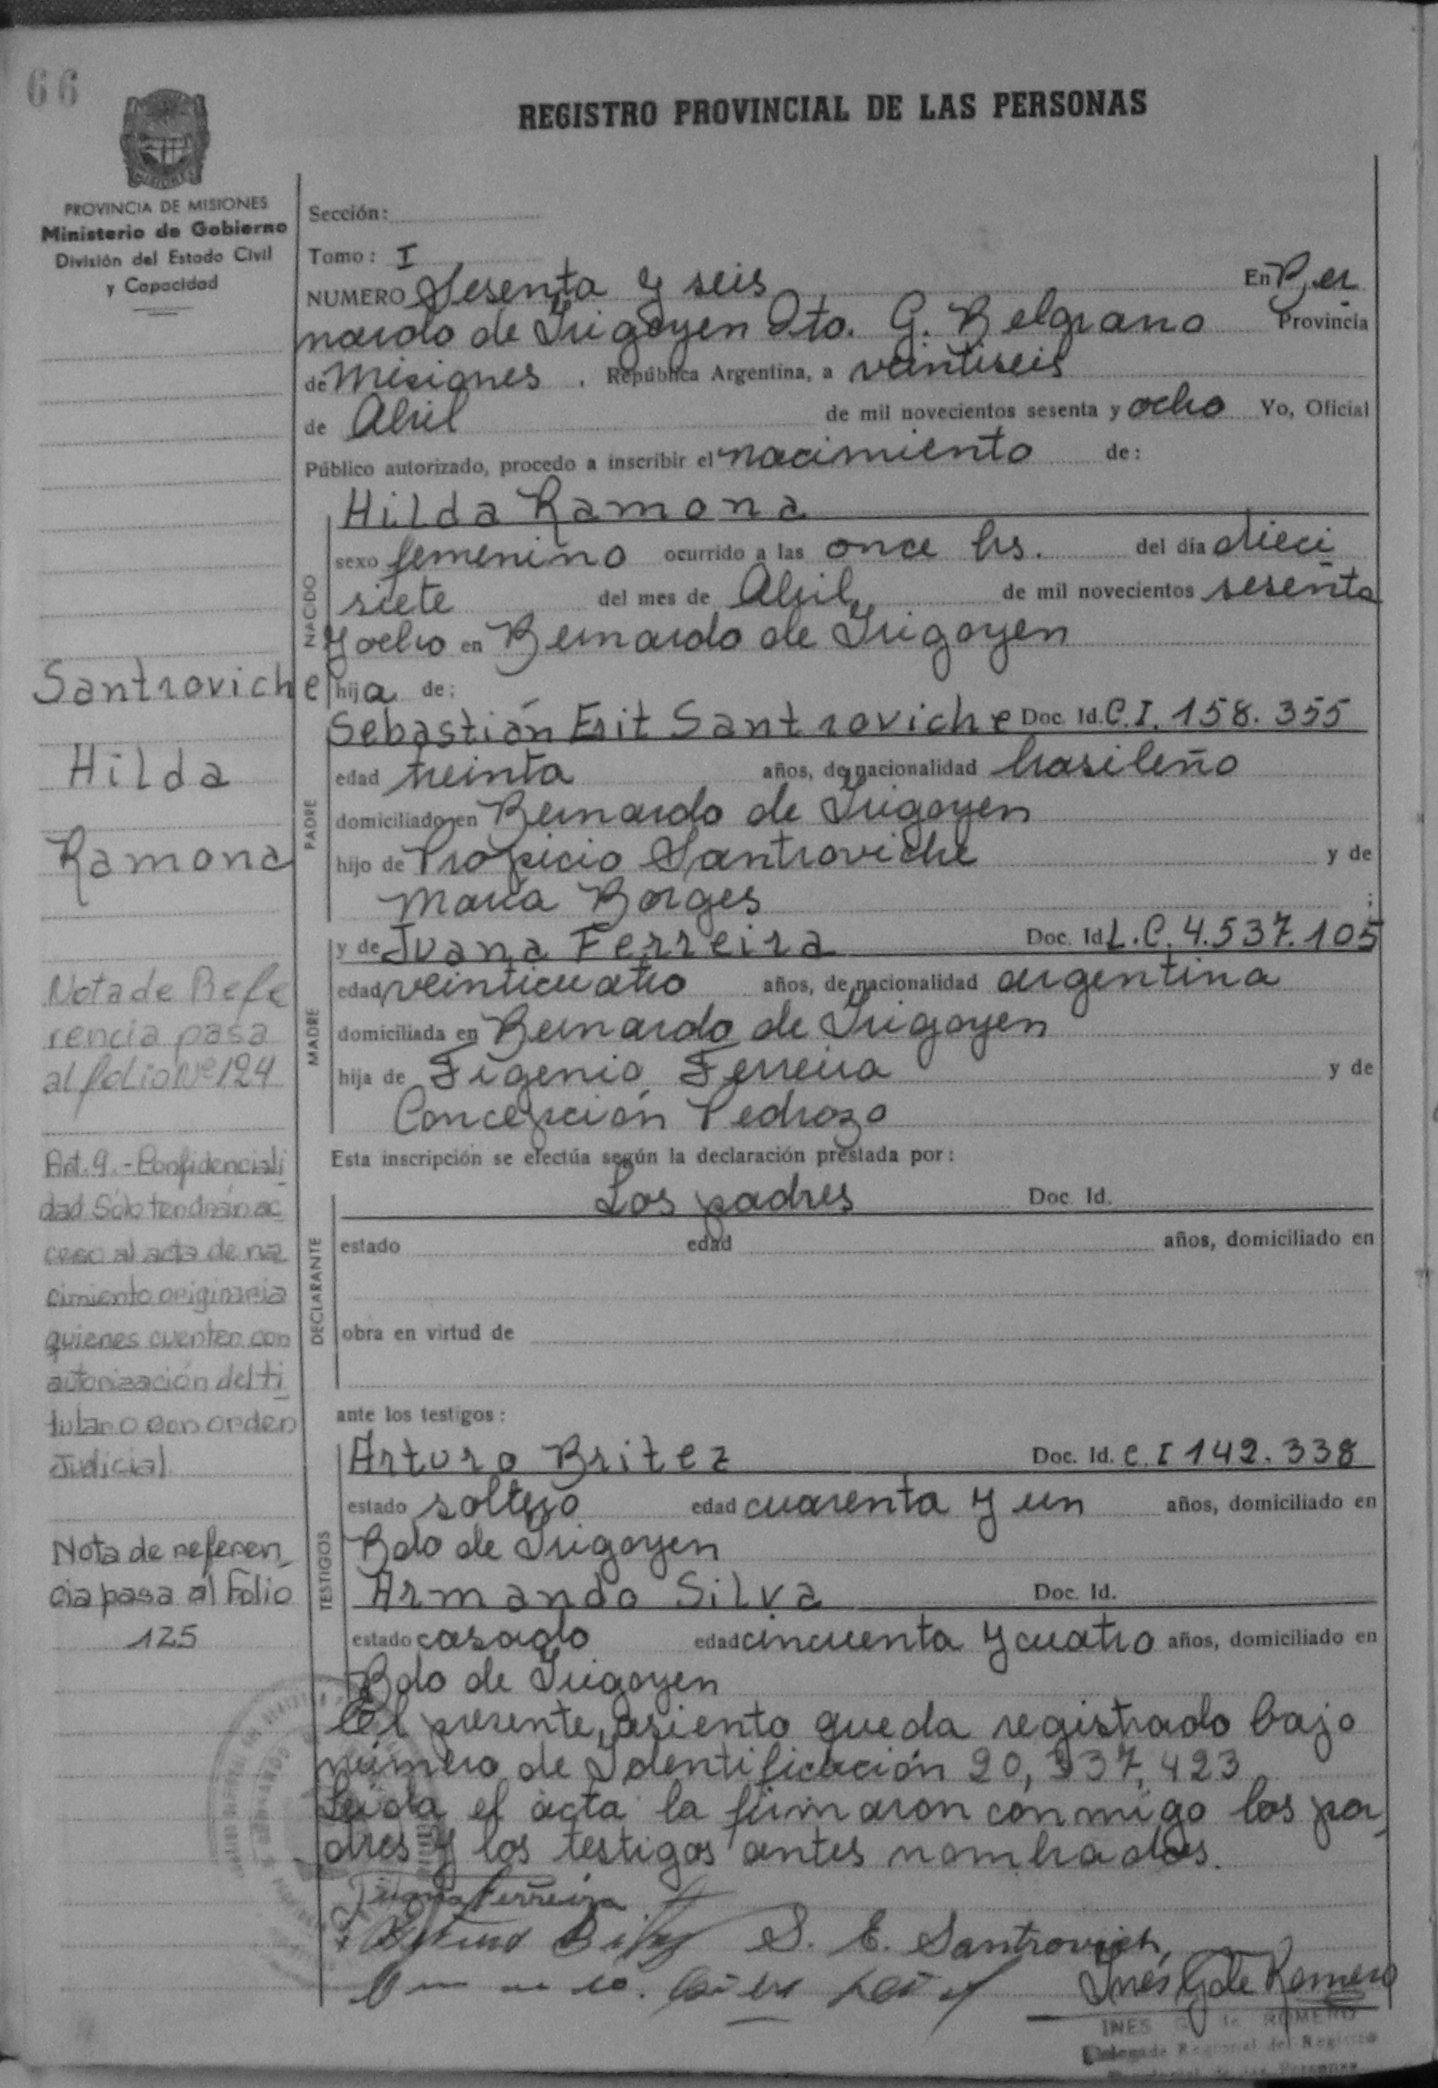 66
REGISTRO PROVINCIAL DE LAS PERSONAS
PROVINCIA DE MISIONES
Ministerio de Gobierno
División del Estado Civil
y Capacidad
Sección:
Tomo: I
NUMERO Sesenta y seis En Ber
nardo de Irigoyen Dto. G. Belgrano Provincia
de Misiones. República Argentina, a veintiseis
de Abril de mil novecientos sesenta y ocho Yo, Oficial
Público autorizado, procedo a inscribir el nacimiento de:
Hilda Ramona
NACIDO
sexo femenino ocurrido a las once hs. del día dieci
siete del mes de Abril de mil novecientos sesenta
y ocho en Bernardo de Irigoyen
hija de:
Santroviche
Hilda
Ramona
PADRE
Sebastián Erit Santroviche Doc. Id. C.I. 158.355
edad treinta años, de nacionalidad brasileño
domiciliado en Bernardo de Irigoyen
hijo de Propicio Santroviche y de
María Borges ;
MADRE
y de Juana Ferreira Doc. Id. L.C. 4.537.105
edad veinticuatro años, de nacionalidad argentina
domiciliada en Bernardo de Irigoyen
hija de Figenio Ferreira y de
Concepción Pedrozo
Nota de Refe
rencia pasa
al folio Nº 124
Art. 9.- Confidenciali
dad Sólo tendrán ac
ceso al acta de na
cimiento originaria
quienes cuenten con
autorización del ti
tular o con orden
Judicial.
Nota de referen
cia pasa al Folio
125
Esta inscripción se efectúa según la declaración prestada por:
DECLARANTE
Los padres Doc. Id.
estado edad años, domiciliado en
obra en virtud de
ante los testigos:
TESTIGOS
Arturo Britez Doc. Id. C.I 142.338
estado soltero edad cuarenta y un años, domiciliado en
Bdo de Irigoyen
Armando Silva Doc. Id.
estado casado edad cincuenta y cuatro años, domiciliado en
Bdo de Irigoyen
El presente asiento queda registrado bajo
número de Identificación 20,337,423
Leída el acta la firmaron conmigo los pa
dres y los testigos antes nombrados.
Juana Ferreira
S. E. Santrovich
Inés G de Romero
INES G. de ROMERO
Delegada Regional del Registro
Provincial de las Personas